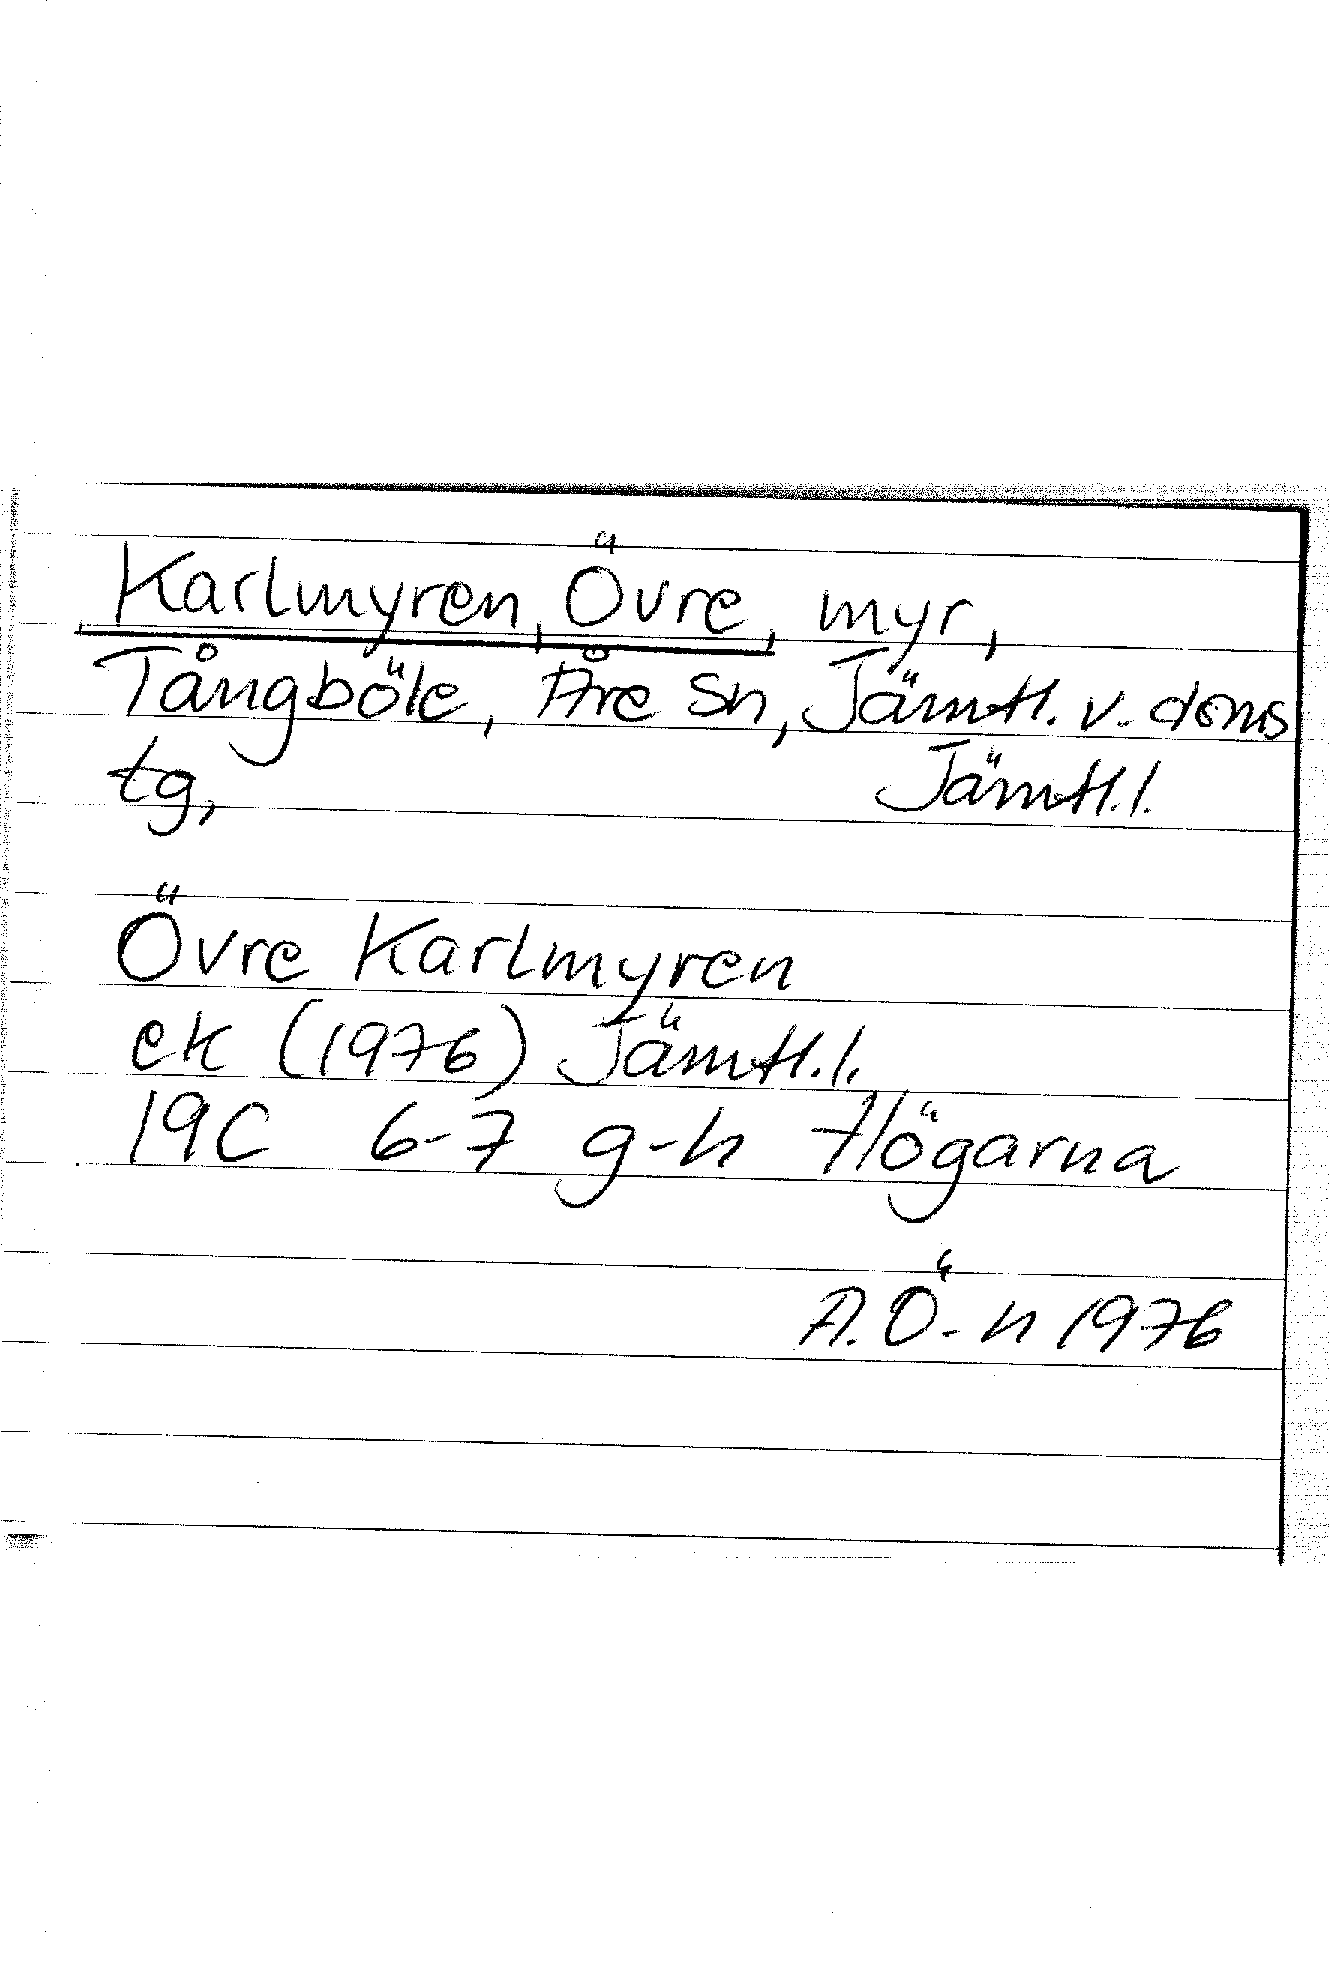 Karlmyren, Övre, myr,
Tångböle, Åre sn, Jämtl. v. doms
tg, Jämtl.l.
Övre Karlmyren
ek (1976) Jämtl.l.
19C 6-7 g-h Högarna
A.Ö-n 1976